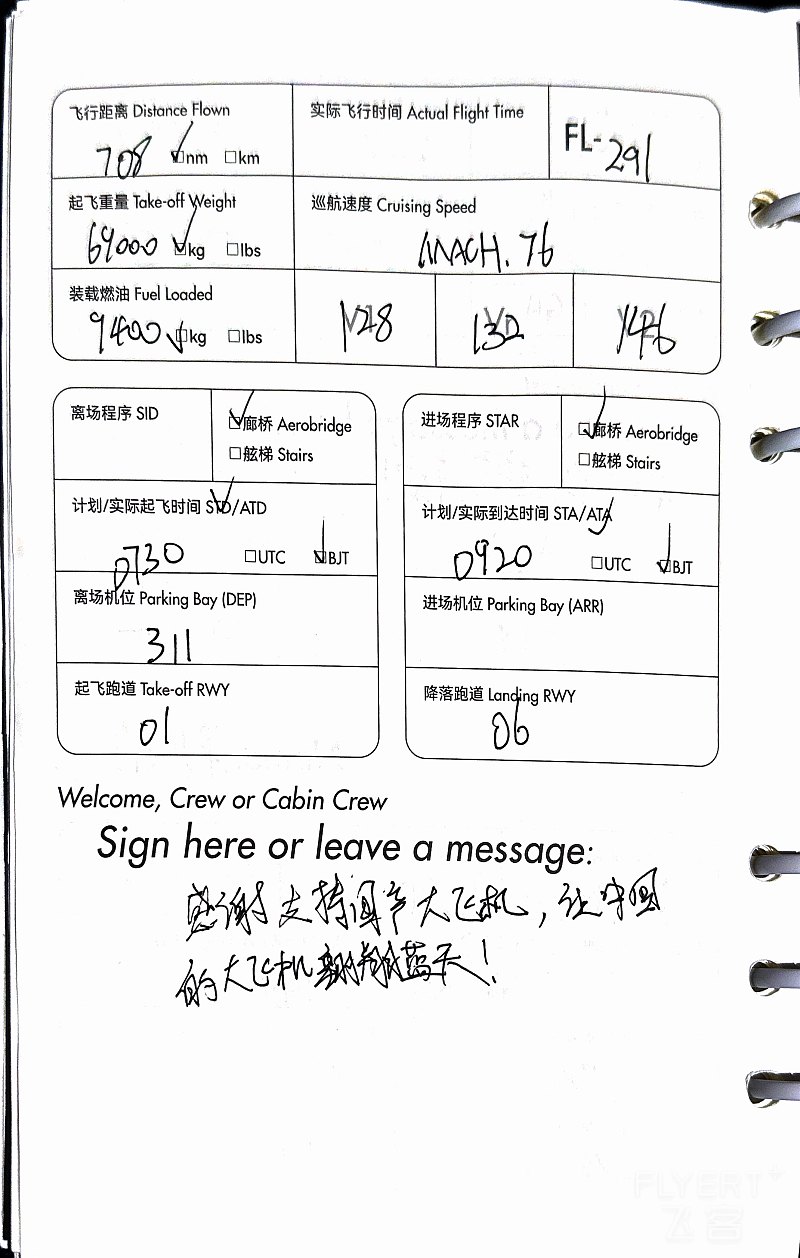 飞行距离 Distance Flown
708 ☑nm ☐km
实际飞行时间 Actual Flight Time
FL-291
起飞重量 Take-off Weight
69000 ☑kg ☐lbs
巡航速度 Cruising Speed
MACH.76
装载燃油 Fuel Loaded
9400 ☑kg ☐lbs
V1 128
VR 132
V2 146
离场程序 SID
☑廊桥 Aerobridge
☐舷梯 Stairs
计划/实际起飞时间 STD/ATD
0730 ☐UTC ☑BJT
离场机位 Parking Bay (DEP)
311
起飞跑道 Take-off RWY
01
进场程序 STAR
☑廊桥 Aerobridge
☐舷梯 Stairs
计划/实际到达时间 STA/ATA
0920 ☐UTC ☑BJT
进场机位 Parking Bay (ARR)
降落跑道 Landing RWY
06
Welcome, Crew or Cabin Crew
Sign here or leave a message:
感谢支持国产大飞机，让中国
的大飞机翱翔蓝天！
FLYERT
飞客